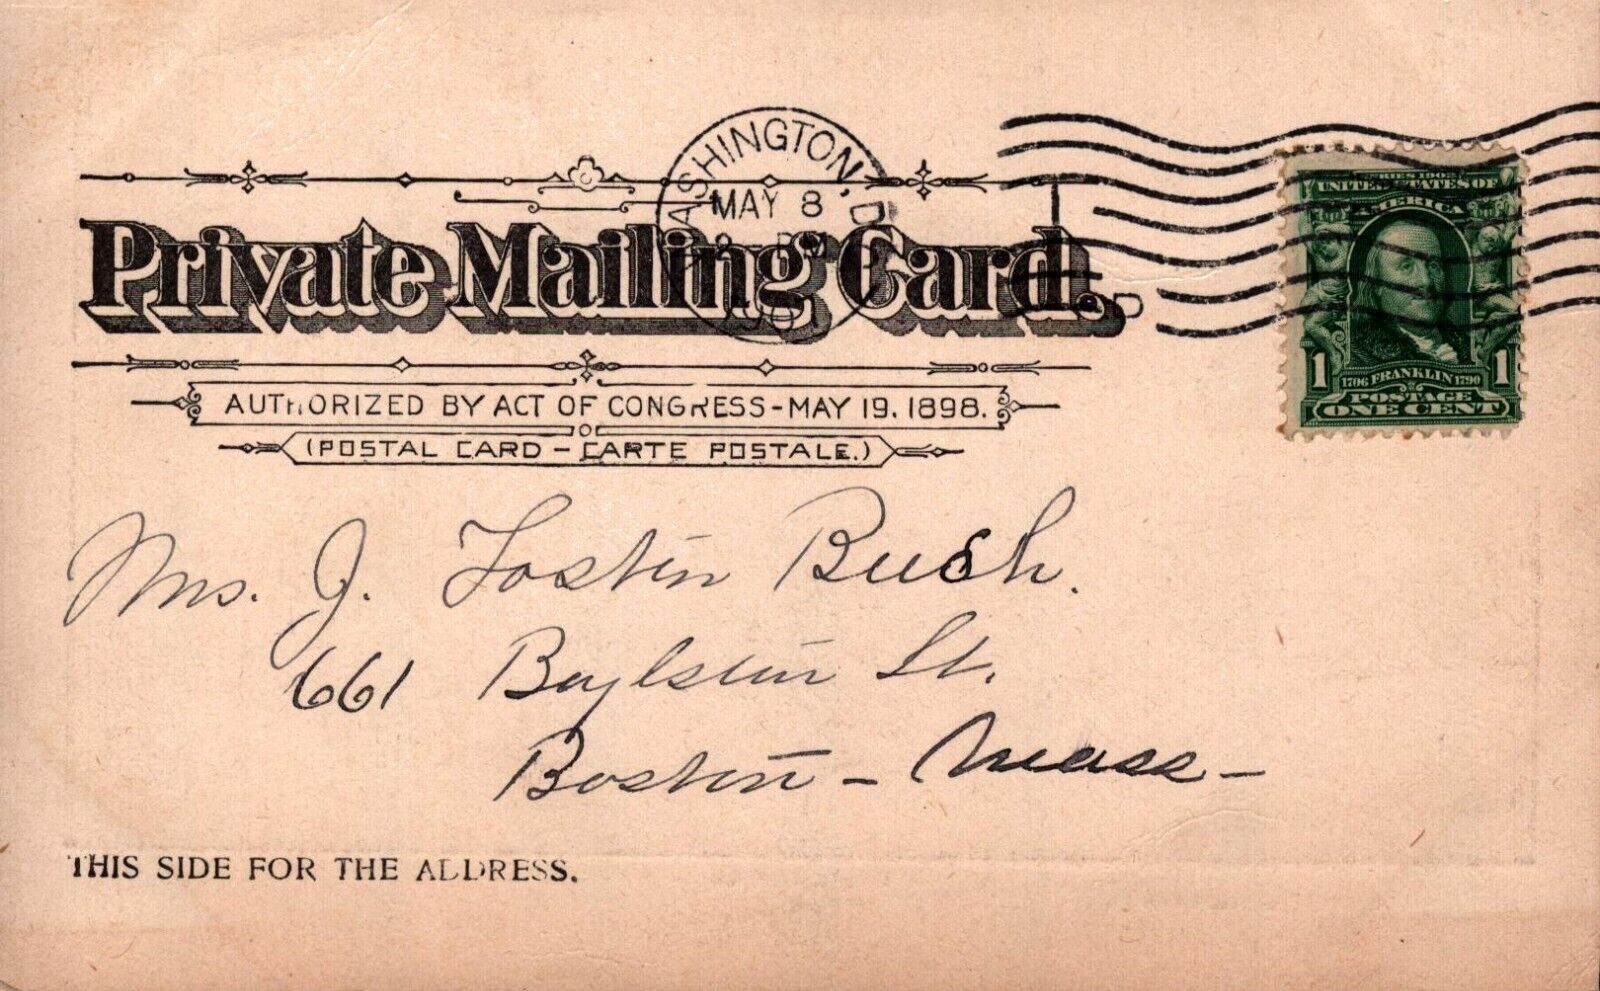 WASHINGTON, D.
MAY 8
PM
Private Mailing Card.
AUTHORIZED BY ACT OF CONGRESS-MAY 19, 1898.
(POSTAL CARD - CARTE POSTALE.)
SERIES 1902
UNITED STATES OF
AMERICA
1 1706 FRANKLIN 1790 1
POSTAGE
ONE CENT
Mrs. J. Foster Bush.
661 Boylston St.
Boston - Mass -
THIS SIDE FOR THE ADDRESS.